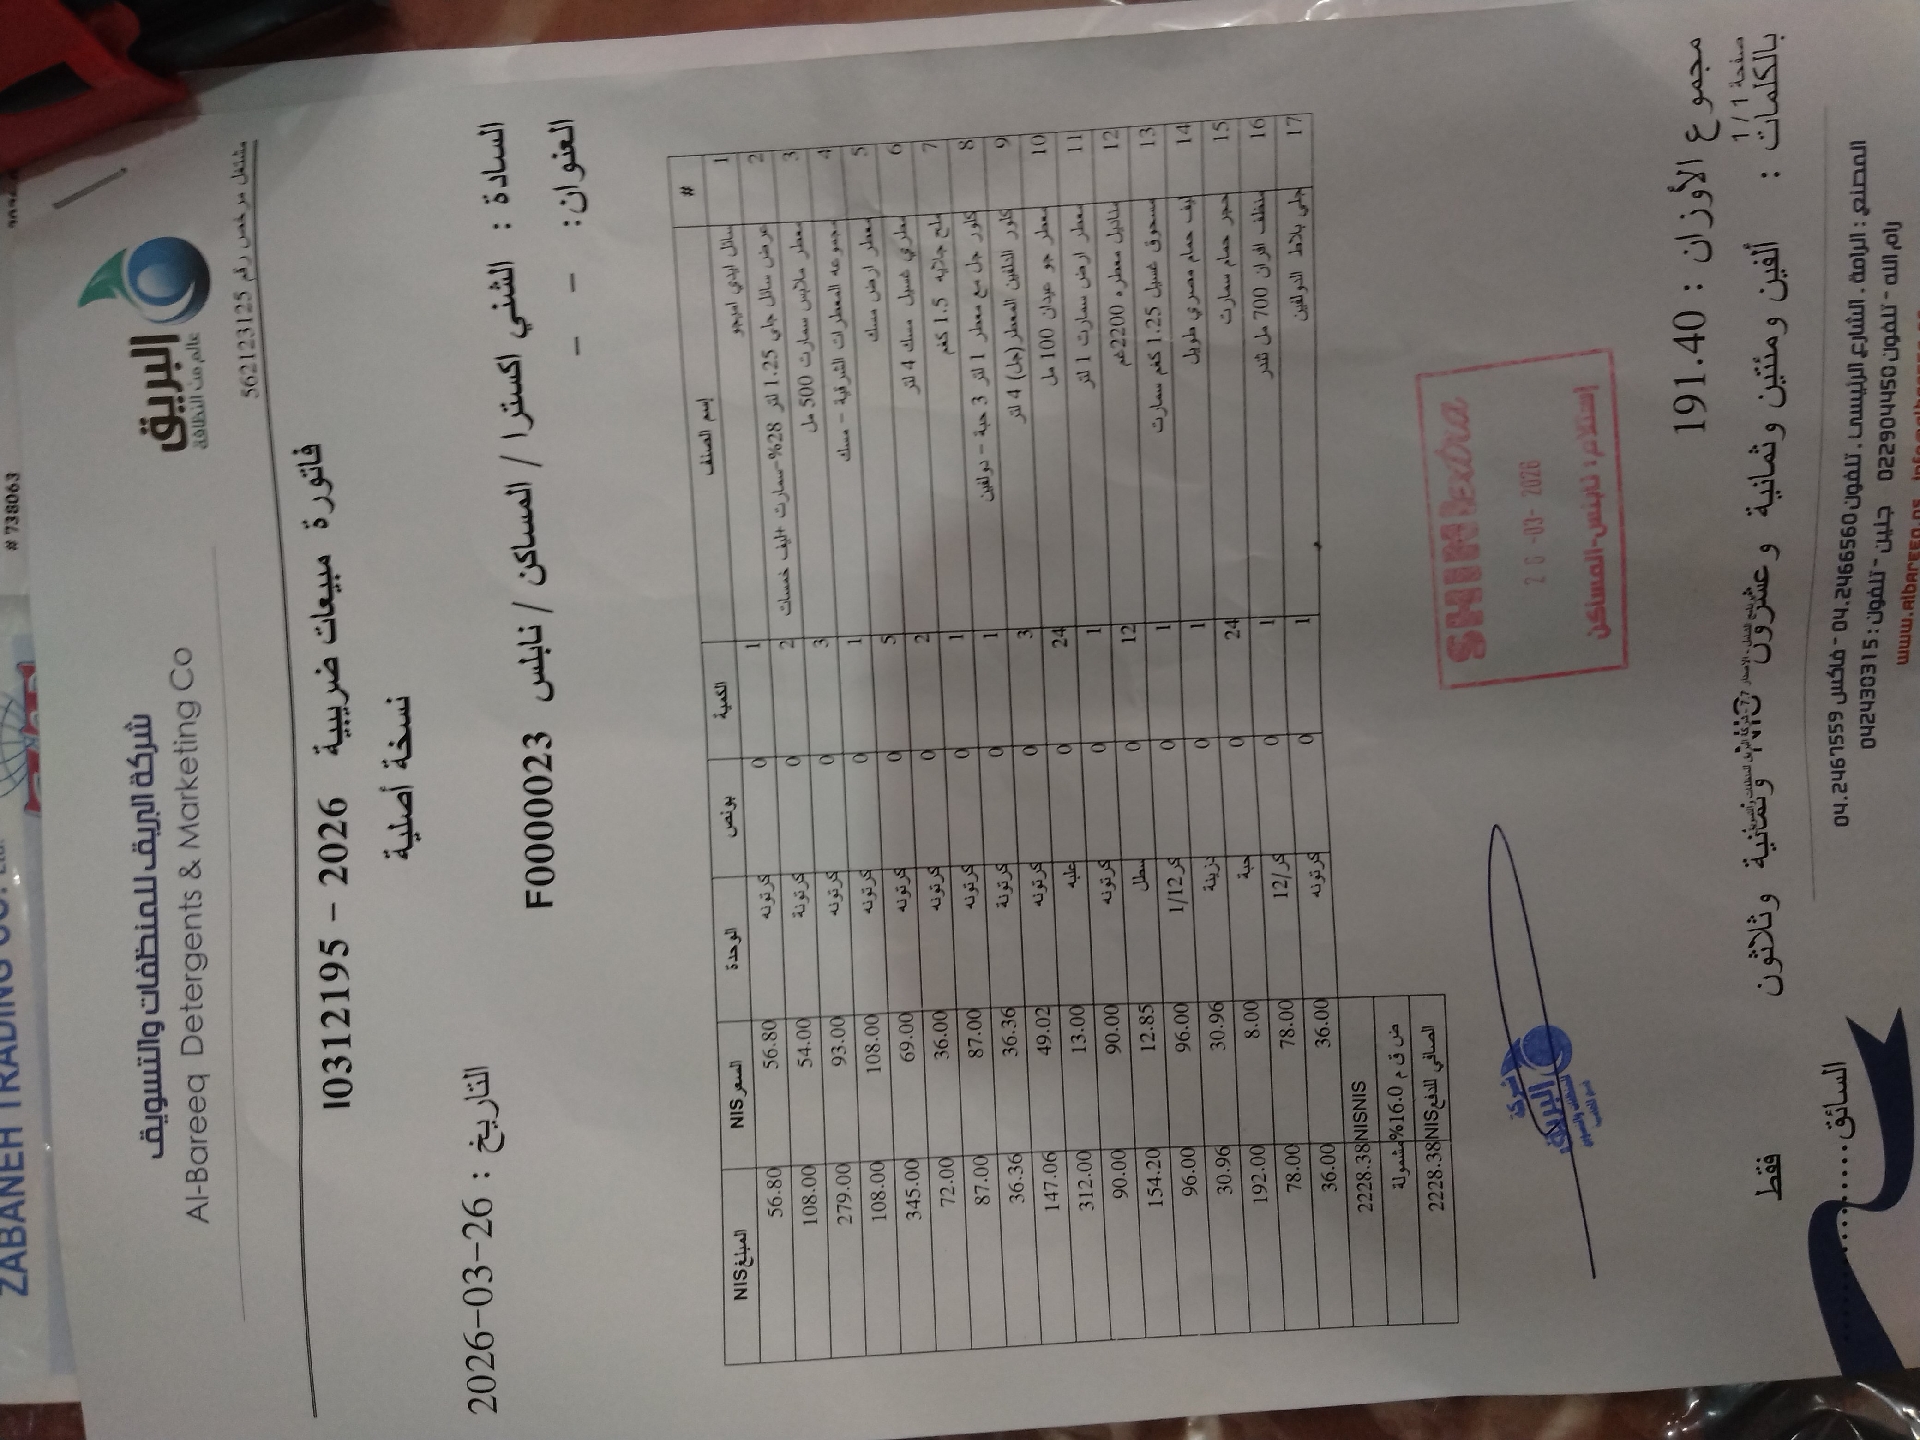 # 738063
ZABANEH TRADING CO. Ltd.
شركة البريق للمنظفات والتسويق
Al-Bareeq Detergents & Marketing Co
البريق
عالم من النظافة
مشتغل مرخص رقم 562123125
فاتورة مبيعات ضريبية I0312195 - 2026
نسخة أصلية
السادة : الشني اكسترا / المساكن / نابلس F0000023
التاريخ : 2026-03-26
العنوان: - -
# إسم الصنف الكمية بونص الوحدة السعر NIS المبلغ NIS
1 سائل ايدي اميجو 1 0 كرتونه 56.80 56.80
2 عرض سائل جلي 1.25 لتر 28%-سمارت +ليف خمسات 2 0 كرتونة 54.00 108.00
3 معطر ملابس سمارت 500 مل 3 0 كرتونه 93.00 279.00
4 مجموعه المعطرات الشرقية - مسك 1 0 كرتونه 108.00 108.00
5 معطر ارض مسك 5 0 كرتونه 69.00 345.00
6 معطري غسيل مسك 4 لتر 2 0 كرتونه 36.00 72.00
7 ملح جلايه 1.5 كغم 1 0 كرتونه 87.00 87.00
8 كلور جل مع معطر 1 لتر 3 حبة - دولفين 1 0 كرتونة 36.36 36.36
9 كلور الدلفين المعطر (جل) 4 لتر 3 0 كرتونه 49.02 147.06
10 معطر جو عيدان 100 مل 24 0 علبه 13.00 312.00
11 معطر ارض سمارت 1 لتر 1 0 كرتونه 90.00 90.00
12 مناديل معطره 2200غم 12 0 سطل 12.85 154.20
13 مسحوق غسيل 1.25 كغم سمارت 1 0 كر1/12 96.00 96.00
14 ليف حمام مصري طويل 1 0 دزينة 30.96 30.96
15 حجر حمام سمارت 24 0 حبة 8.00 192.00
16 منظف افران 700 مل ثندر 1 0 كر/12 78.00 78.00
17 جلي بلاط الدولفين 1 0 كرتونه 36.00 36.00
NISNIS 2228.38
ض ق م 16.0% مشمولة
الصافي للدفع NIS 2228.38
SHINI extra
26-03-2026
إستلام: نابلس-المساكن
شركة
البريق
مجموع الأوزان : 191.40
صفحة 1 / 1
بالكلمات : ألفين ومئتين وثمانية وعشرون NIS وثمانية وثلاثون فقط
السائق
المصنع : الرامة . الشارع الرئيسي . تلفون 04.2466560 - فاكس 04.2467559
رام الله - تلفون 022904450 جنين - تلفون : 042430315
www.Albareeq.ps